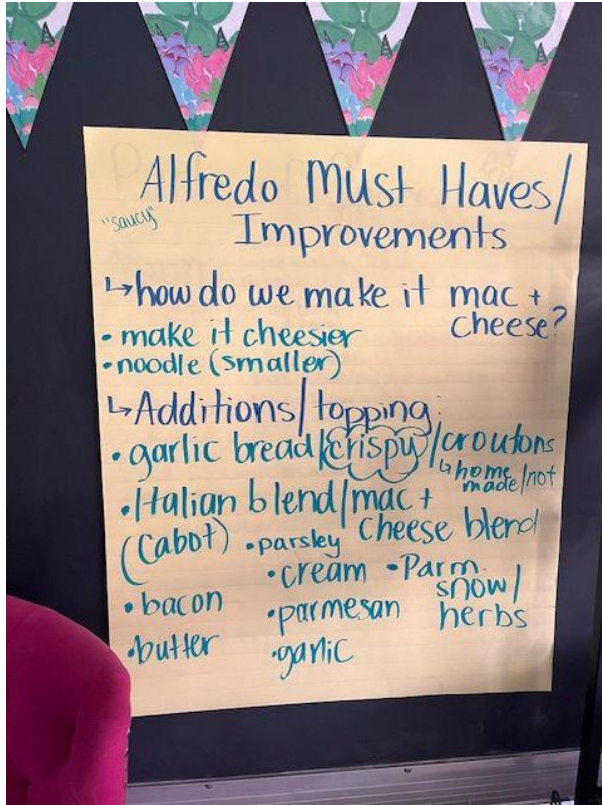 Alfredo Must Haves/
"saucy"
Improvements
↳how do we make it mac +
cheese?
• make it cheesier
• noodle (smaller)
↳Additions/topping:
• garlic bread/crispy/croutons
↳home made/not
• Italian blend/mac +
cheese blend
(Cabot)
• parsley
• cream
• Parm.
snow/
herbs
• bacon
• parmesan
• butter
• garlic